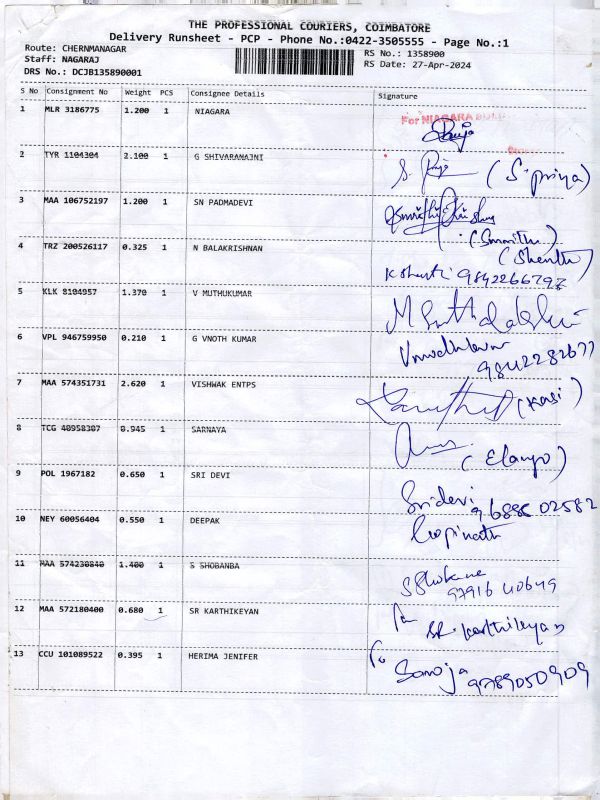 THE PROFESSIONAL COURIERS, COIMBATORE
Delivery Runsheet - PCP - Phone No.:0422-3505555 - Page No.:1
Route: CHERNMANAGAR RS No.: 1358900
Staff: NAGARAJ RS Date: 27-Apr-2024
DRS No.: DCJB135890001
S No Consignment No Weight PCS Consignee Details Signature
1 MLR 3186775 1.200 1 NIAGARA
For NIAGARA
2 TYR 1104304 2.100 1 G SHIVARANAJNI
S. Priya (S. priya)
3 MAA 106752197 1.200 1 SN PADMADEVI
(Smrithi)
4 TRZ 200526117 0.325 1 N BALAKRISHNAN
(Shanthi)
K Shanthi 9842266797
5 KLK 8104957 1.370 1 V MUTHUKUMAR
6 VPL 946759950 0.210 1 G VNOTH KUMAR
9842282677
7 MAA 574351731 2.620 1 VISHWAK ENTPS
(Kasi)
8 TCG 40958307 0.945 1 SARNAYA
(Elango)
9 POL 1967182 0.650 1 SRI DEVI
Sridevi 9688602582
10 NEY 60056404 0.550 1 DEEPAK
Gopinath
11 MAA 574230840 1.400 1 S SHOBANBA
97916 40649
12 MAA 572180400 0.680 1 SR KARTHIKEYAN
SR. Karthikeyan
13 CCU 101089522 0.395 1 HERIMA JENIFER
Saroja 9789050909